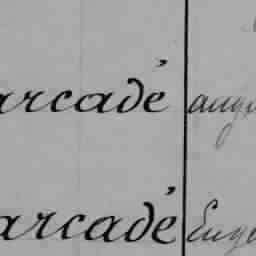 arcadé augu
arcadé Euge